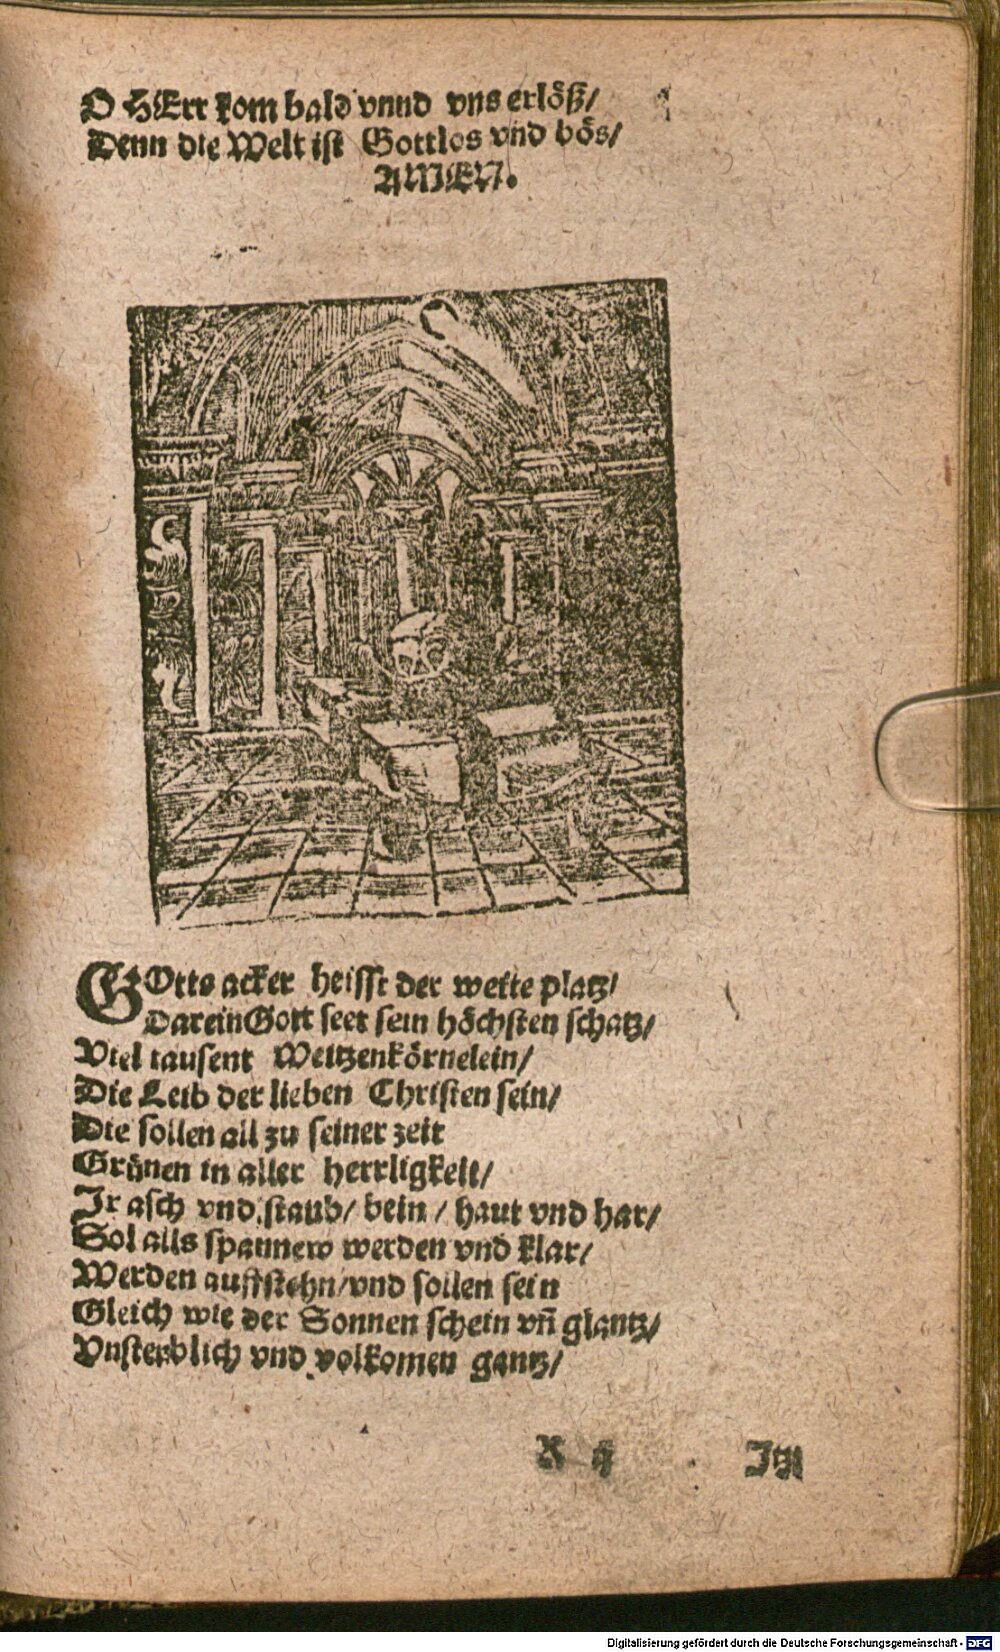 O HErr kom bald vnnd vns erlöß/
Denn die Welt ist Gottlos vnd bös/
AMEN.
GOtts acker heisst der weite platz/
Darein Gott seet sein höchsten schatz/
Viel tausent Weitzenkörnelein/
Die Leib der lieben Christen sein/
Die sollen all zu seiner zeit
Grünen in aller herrligkeit/
Ir asch vnd staub/ bein/ haut vnd har/
Sol alls spannew werden vnd klar/
Werden auffstehn/ vnd sollen sein
Gleich wie der Sonnen schein vñ glantz/
Vnsterblich vnd volkomen gantz/
Digitalisierung gefördert durch die Deutsche Forschungsgemeinschaft - DFG